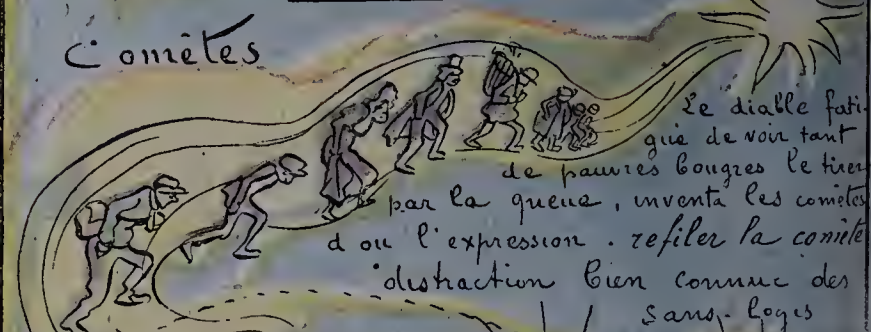 Comètes
Le diable fati-
gué de voir tant
de pauvres bougres le tirer
par la queue, inventa les comètes
d ou l'expression. refiler la comète
distraction bien connue des
sans-logis